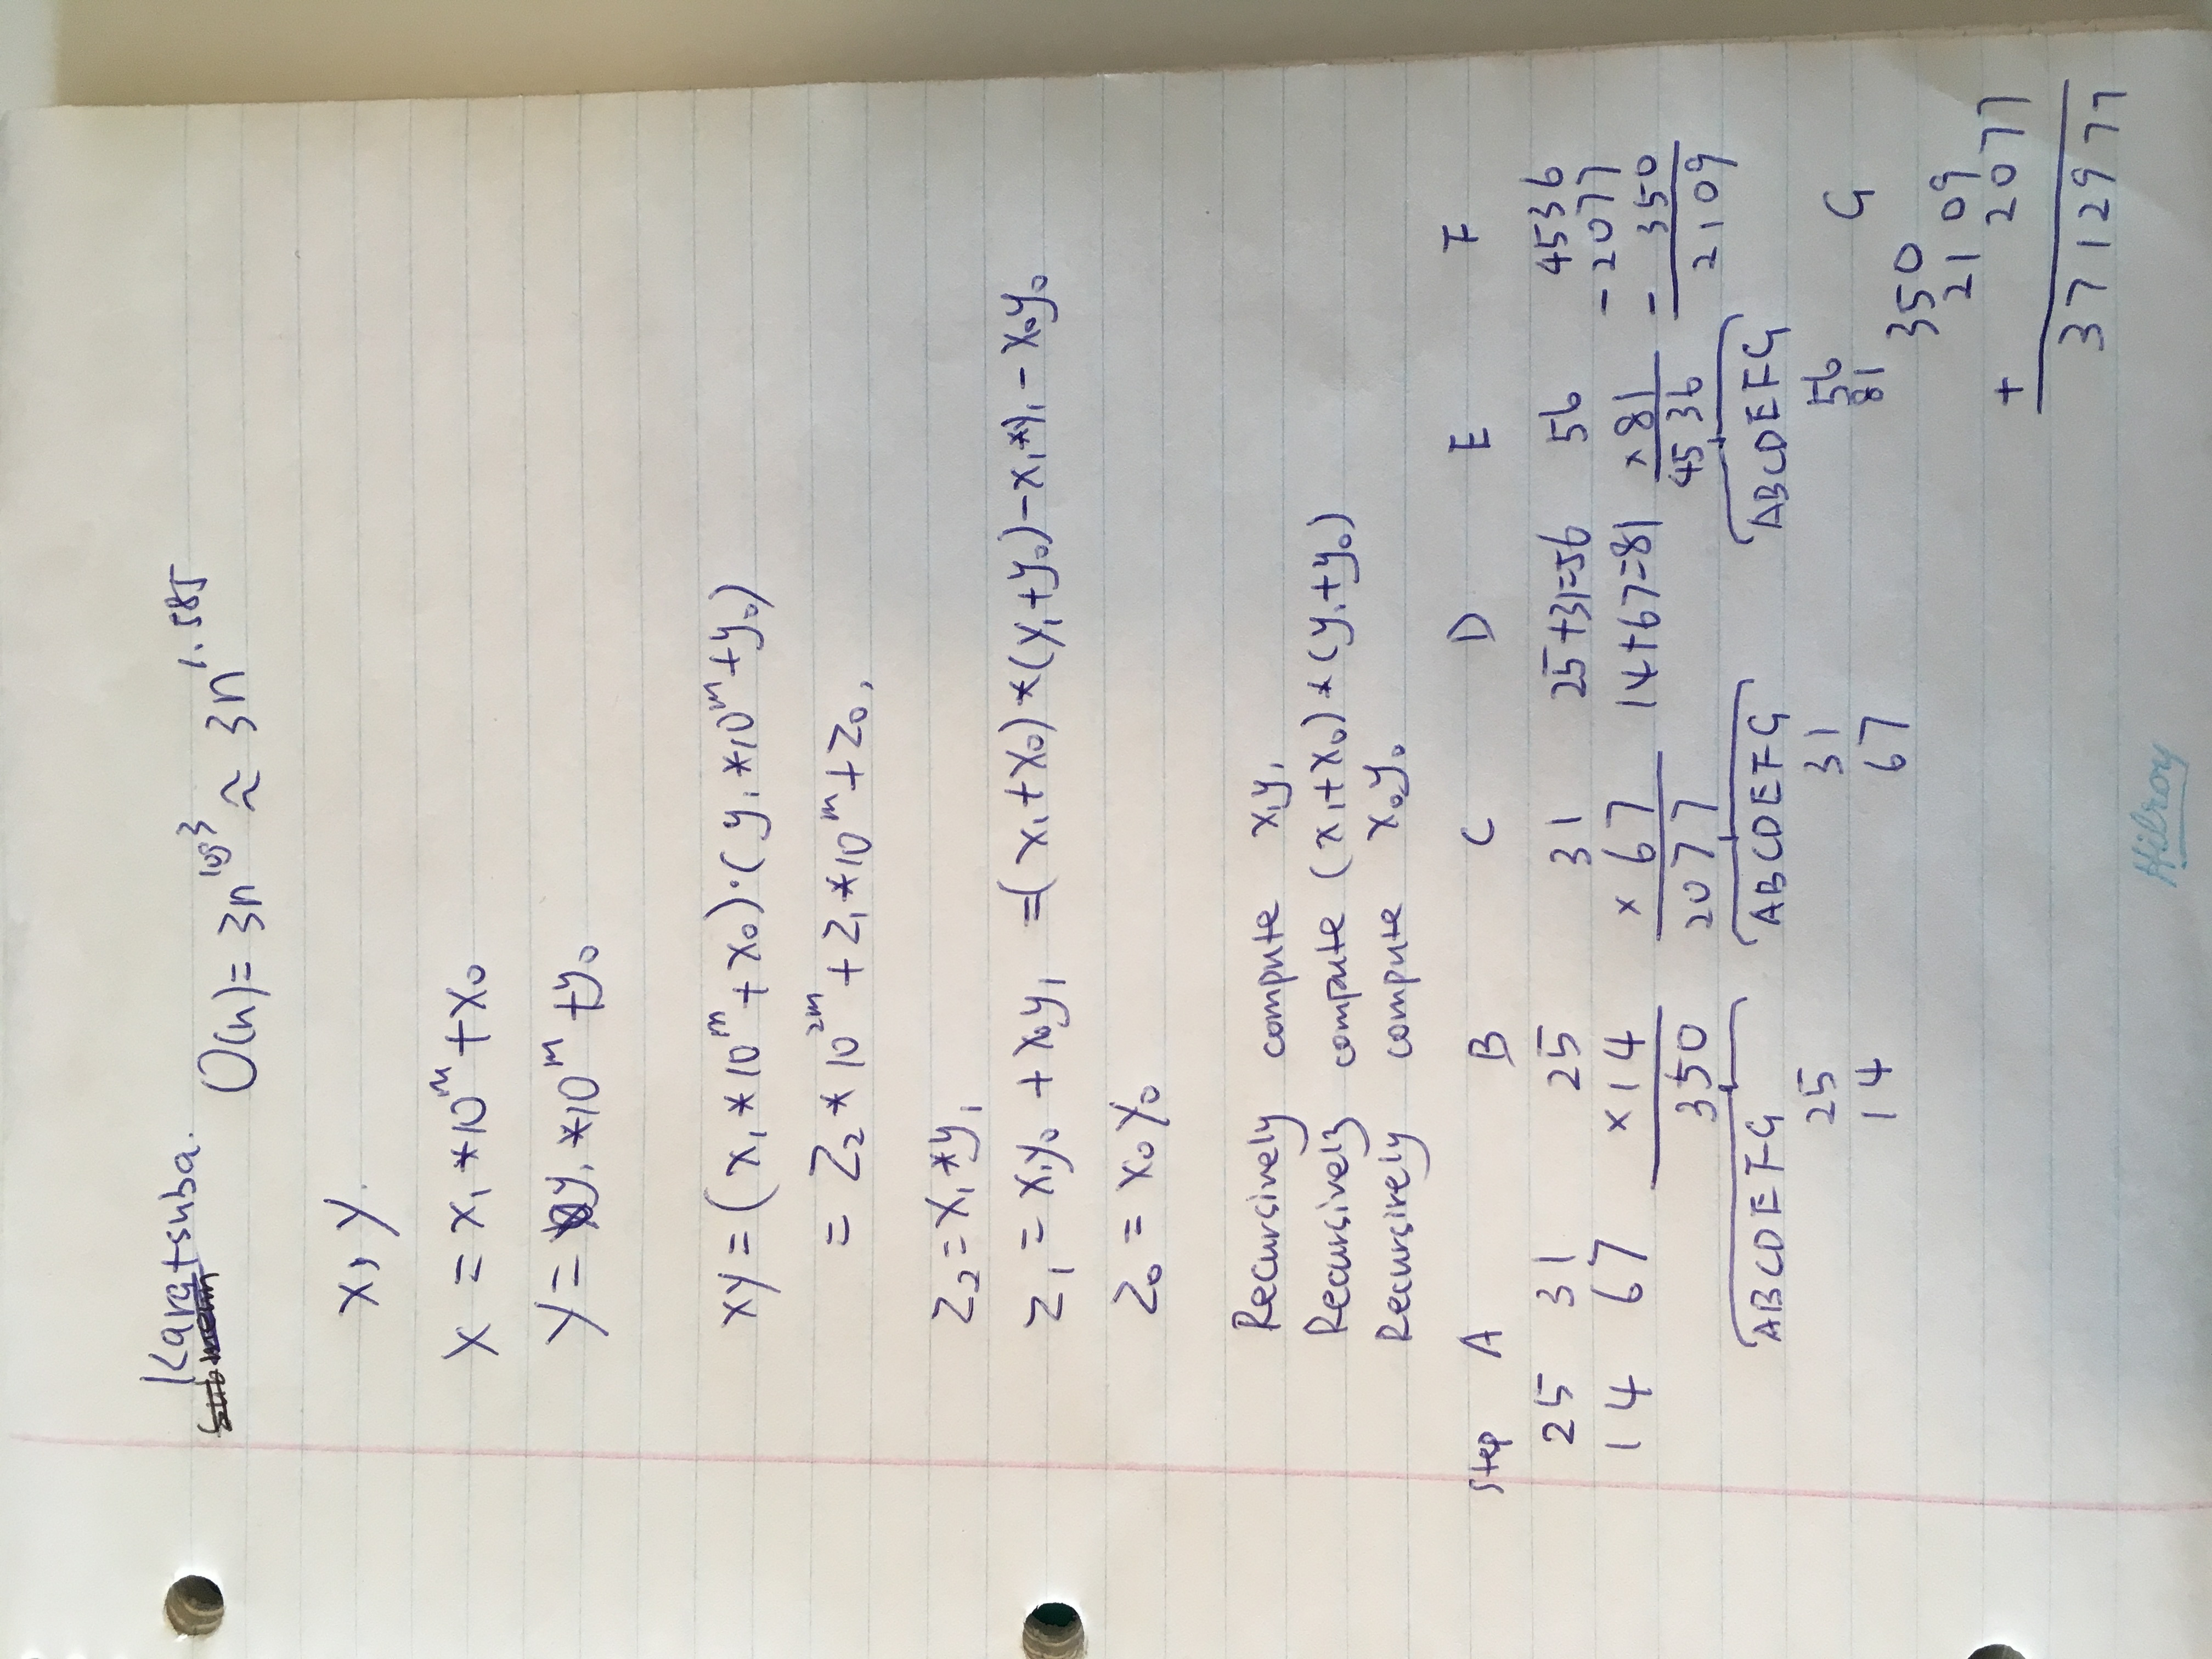 Karatsuba.
O(n) = 3n^log3 ≈ 3n^1.585
x, y.
x = x₁ * 10^m + x₀
y = y₁ * 10^m + y₀
xy = (x₁ * 10^m + x₀)·(y₁ * 10^m + y₀)
= Z₂ * 10^2m + Z₁ * 10^m + Z₀,
Z₂ = x₁ * y₁
Z₁ = x₁y₀ + x₀y₁ = (x₁ + x₀) * (y₁ + y₀) - x₁ * y₁ - x₀y₀
Z₀ = x₀ y₀
Recursively compute x₁y₁
Recursively compute (x₁ + x₀) * (y₁ + y₀)
Recursively compute x₀y₀
Step A B C D E F
25 31 25 31 25+31=56 56 4536
14 67 ×14 × 67 14+67=81 ×81 -2077
- 350
350 2077 4536 2109
ABCDEFG ABCDEFG ABCDEFG
25 31 56
14 67 81
G
350
2109
+ 2077
3712977
Hilroy